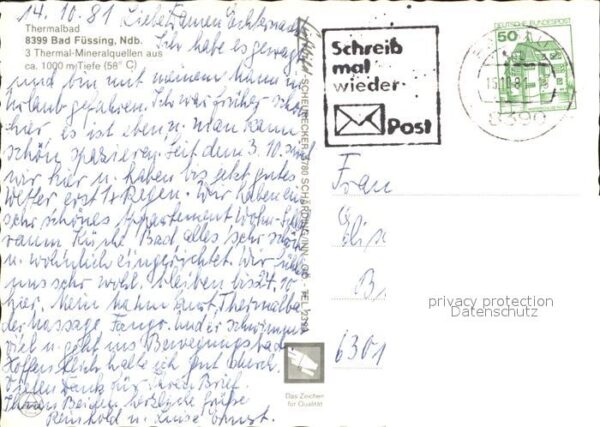 14.10.81 Liebe Frau
Thermalbad
8399 Bad Füssing, Ndb.
3 Thermal-Mineralquellen aus
ca. 1000 m Tiefe (58° C)
Ich habe es gewagt
und bin mit meinem Mann in
Urlaub gefahren. Ich war früher schon
hier, es ist eben u. man kann
schön spazieren. Seit dem 3.10. sind
wir hier u. haben bis jetzt gutes
Wetter erst 1x Regen. Wir haben ein
sehr schönes Appartement Wohn-
raum Küche Bad, alles sehr schön
u. wohnlich eingerichtet. Wir fühlen
uns sehr wohl, bleiben bis 24.10.
hier. Mein Mann
der Massage, Fango. und er schwimmt
viel u. geht ins Bewegungsbad
Hoffentlich halte ich gut durch.
Vielen Dank für Ihren Brief.
Ihnen Beiden herzliche Grüße
Reinhold u. Luise
SCHARDING/INN, OÖ - TEL.
Schreib
mal
wieder
Post
DEUTSCHE BUNDESPOST
50
8399
Frau
B
6301
privacy protection
Datenschutz
Das Zeichen
für Qualität